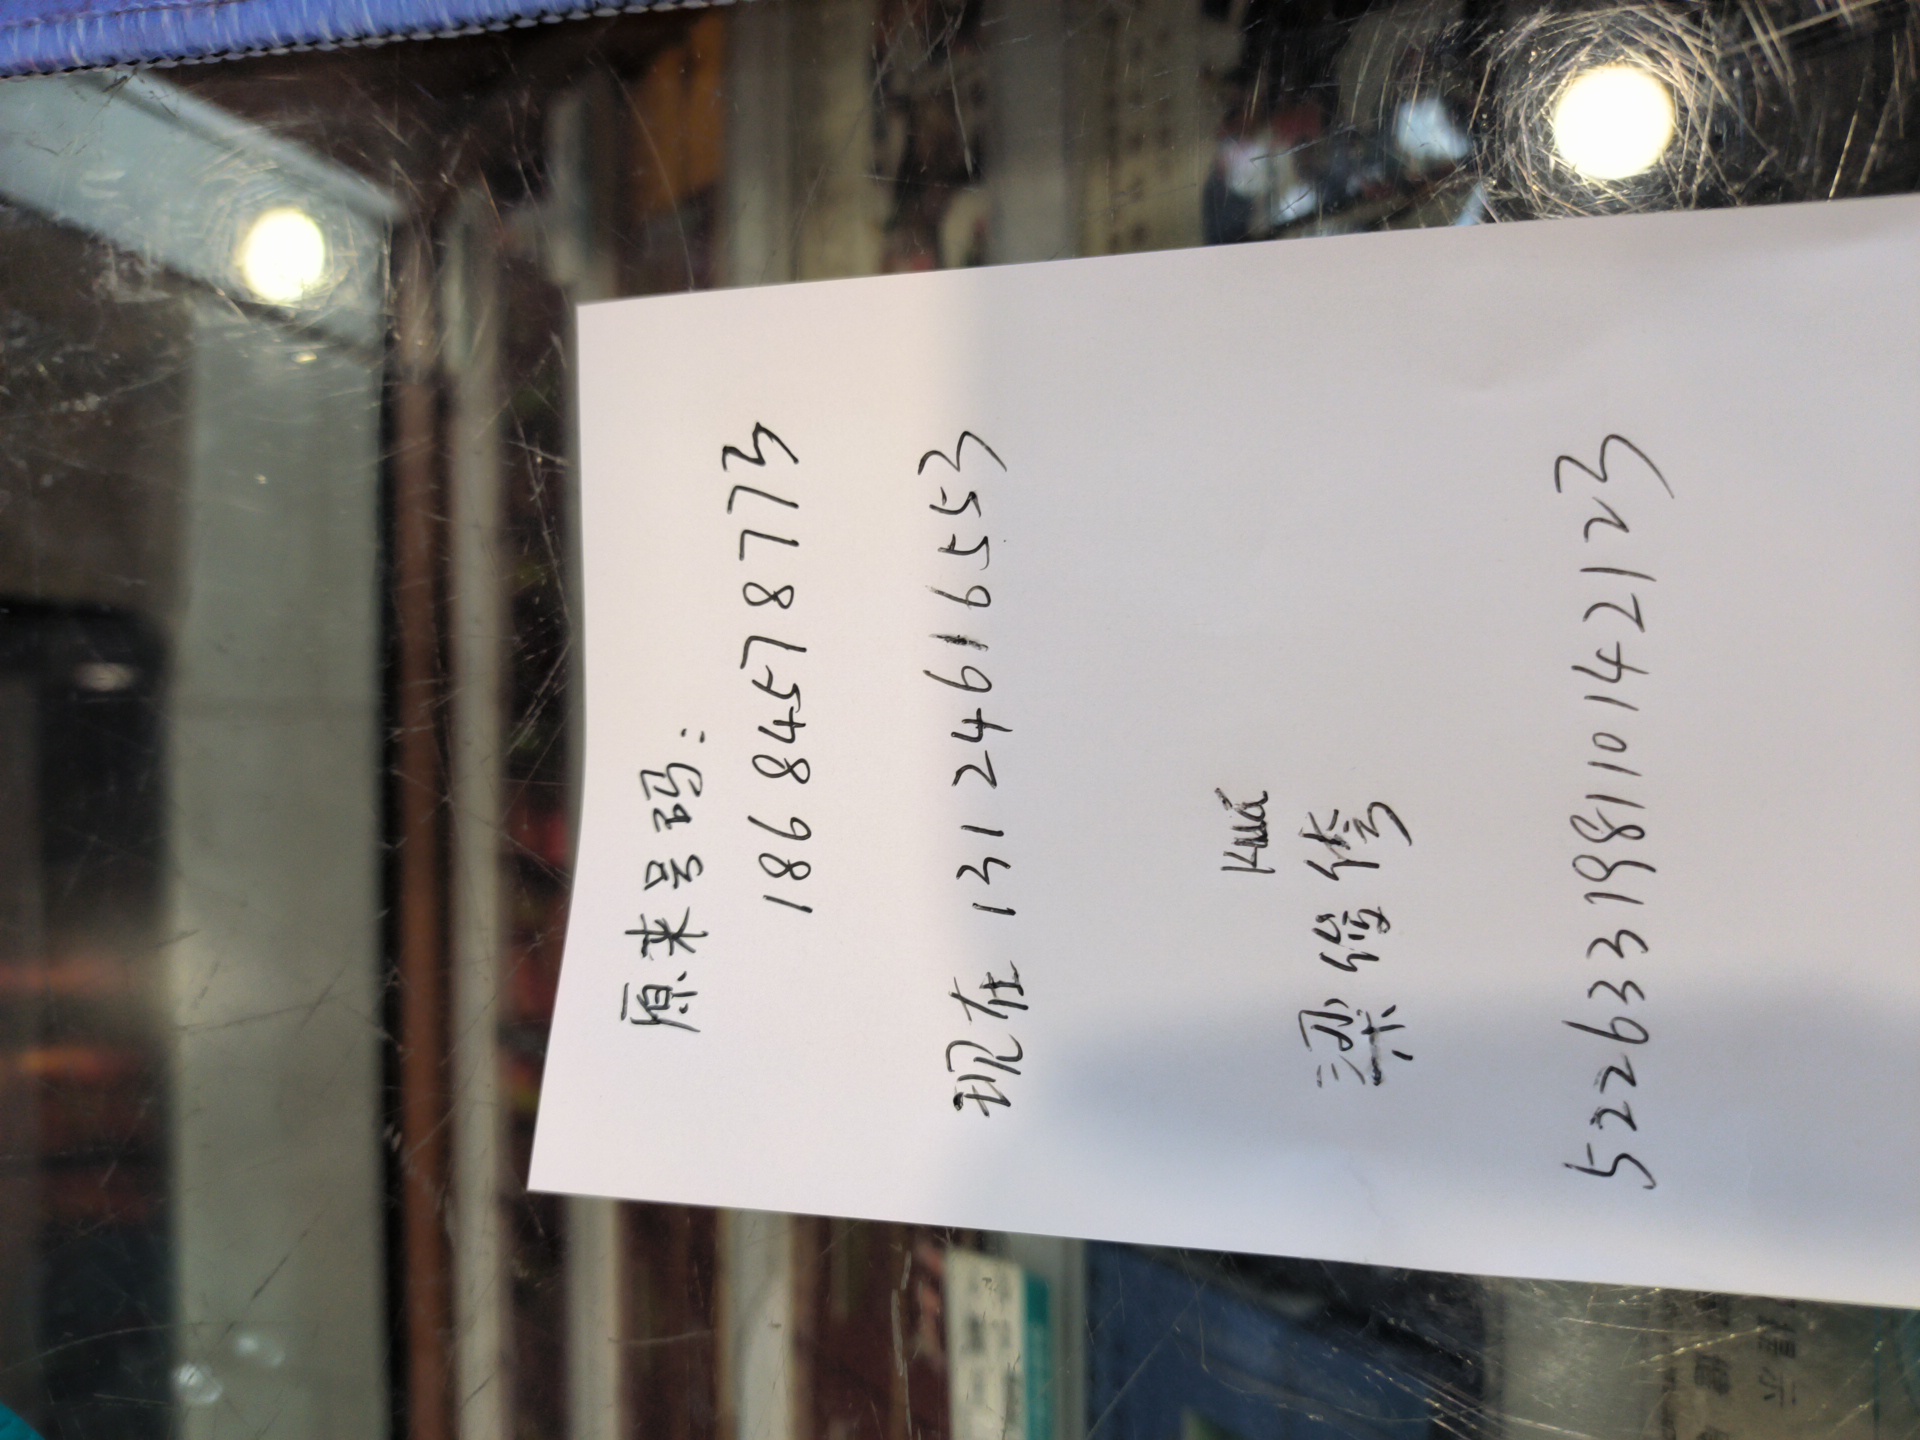 原来号码:
18684578773
现在 13124616553
Kuǎ
梁 侉
522633198110142123